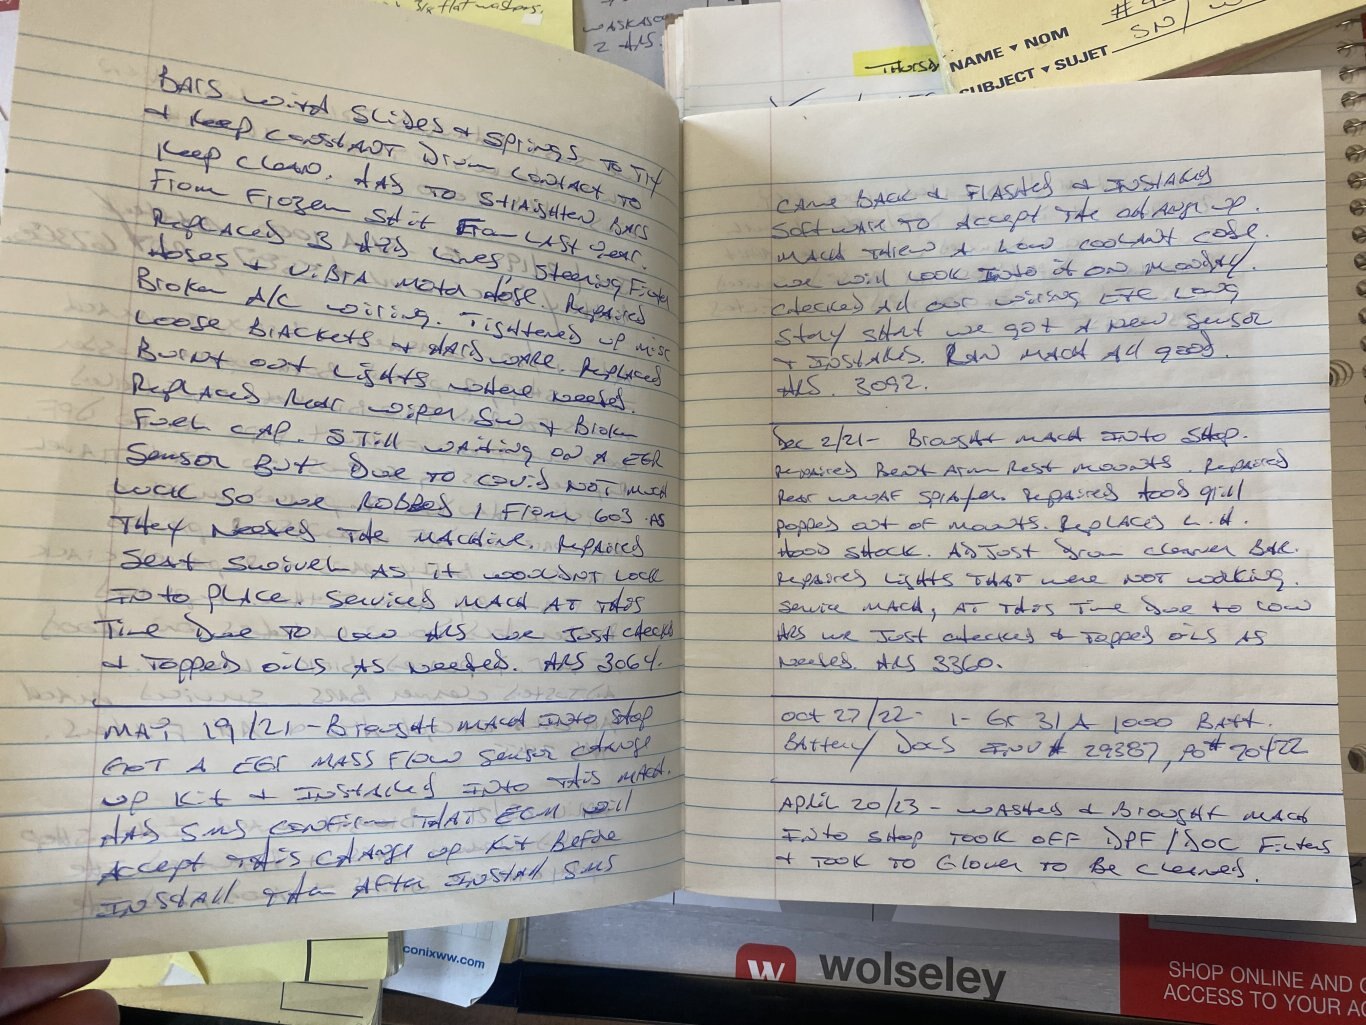 3/8 flat washers.
WASKASOO
2 HRS.
THURSD
#9
SN/W
NAME ▾ NOM
SUBJECT ▾ SUJET
BARS WITH SLIDES & SPRINGS TO TRY
& KEEP CONSTANT DRUM CONTACT TO
KEEP CLEAN. HAD TO STRAIGHTEN BARS
FROM FROZEN SHIT FROM LAST YEAR.
REPLACED 3 HYD LINES, STEERING, FILTER
HOSES & VIBRA MOTOR HOSE. REPAIRED
BROKEN A/C WIRING. TIGHTENED UP MISC
LOOSE BRACKETS & HARDWARE. REPLACED
BURNT OUT LIGHTS WHERE NEEDED.
REPLACED REAR WIPER SW & BROKEN
FUEL CAP. STILL WAITING ON A EGR
SENSOR BUT DUE TO COVID NOT MUCH
LUCK SO WE ROBBED 1 FROM 603 AS
THEY NEEDED THE MACHINE. REPAIRED
SEAT SWIVEL AS IT WOULDNT LOCK
INTO PLACE. SERVICED MACH AT THIS
TIME DUE TO LOW HRS WE JUST CHECKED
& TOPPED OILS AS NEEDED. HRS 3064.
19/21 - BROUGHT MACH INTO SHOP
GOT A EGR MASS FLOW SENSOR CHANGE
UP KIT & INSTALLED INTO THIS MACH.
HAD SMS CONFIRM THAT ECM WILL
ACCEPT THIS CHANGE UP KIT BEFORE
INSTALL THEN AFTER INSTALL SMS
CAME BACK & FLASHED & INSTALLED
SOFTWARE TO ACCEPT THE CHANGE UP.
MACH THREW A LOW COOLANT CODE.
WE WILL LOOK INTO IT ON MONDAY.
CHECKED ALL OUR WIRING ETC LONG
STORY SHORT WE GOT A NEW SENSOR
& INSTALLED. RAN MACH ALL GOOD.
HRS. 3092.
DEC 2/21 - BROUGHT MACH INTO SHOP.
REPAIRED BENT ARM REST MOUNTS. REPAIRED
REAR SPRAYER. REPAIRED HOOD GRILL
POPPED OUT OF MOUNTS. REPLACED L.H.
HOOD SHOCK. ADJUST DRUM CLEANER BAR.
REPAIRED LIGHTS THAT WERE NOT WORKING.
SERVICE MACH, AT THIS TIME DUE TO LOW
HRS WE JUST CHECKED & TOPPED OILS AS
NEEDED. HRS 3360.
OCT 27/22 - 1- GR 31 A 1000 BATT.
BATTERY DOCS INV # 29387, PO# 70422
APRIL 20/23 - WASHED & BROUGHT MACH
INTO SHOP TOOK OFF DPF/DOC FILTERS
& TOOK TO GLOVER TO BE CLEANED.
conixww.com
W wolseley
SHOP ONLINE AND
ACCESS TO YOUR